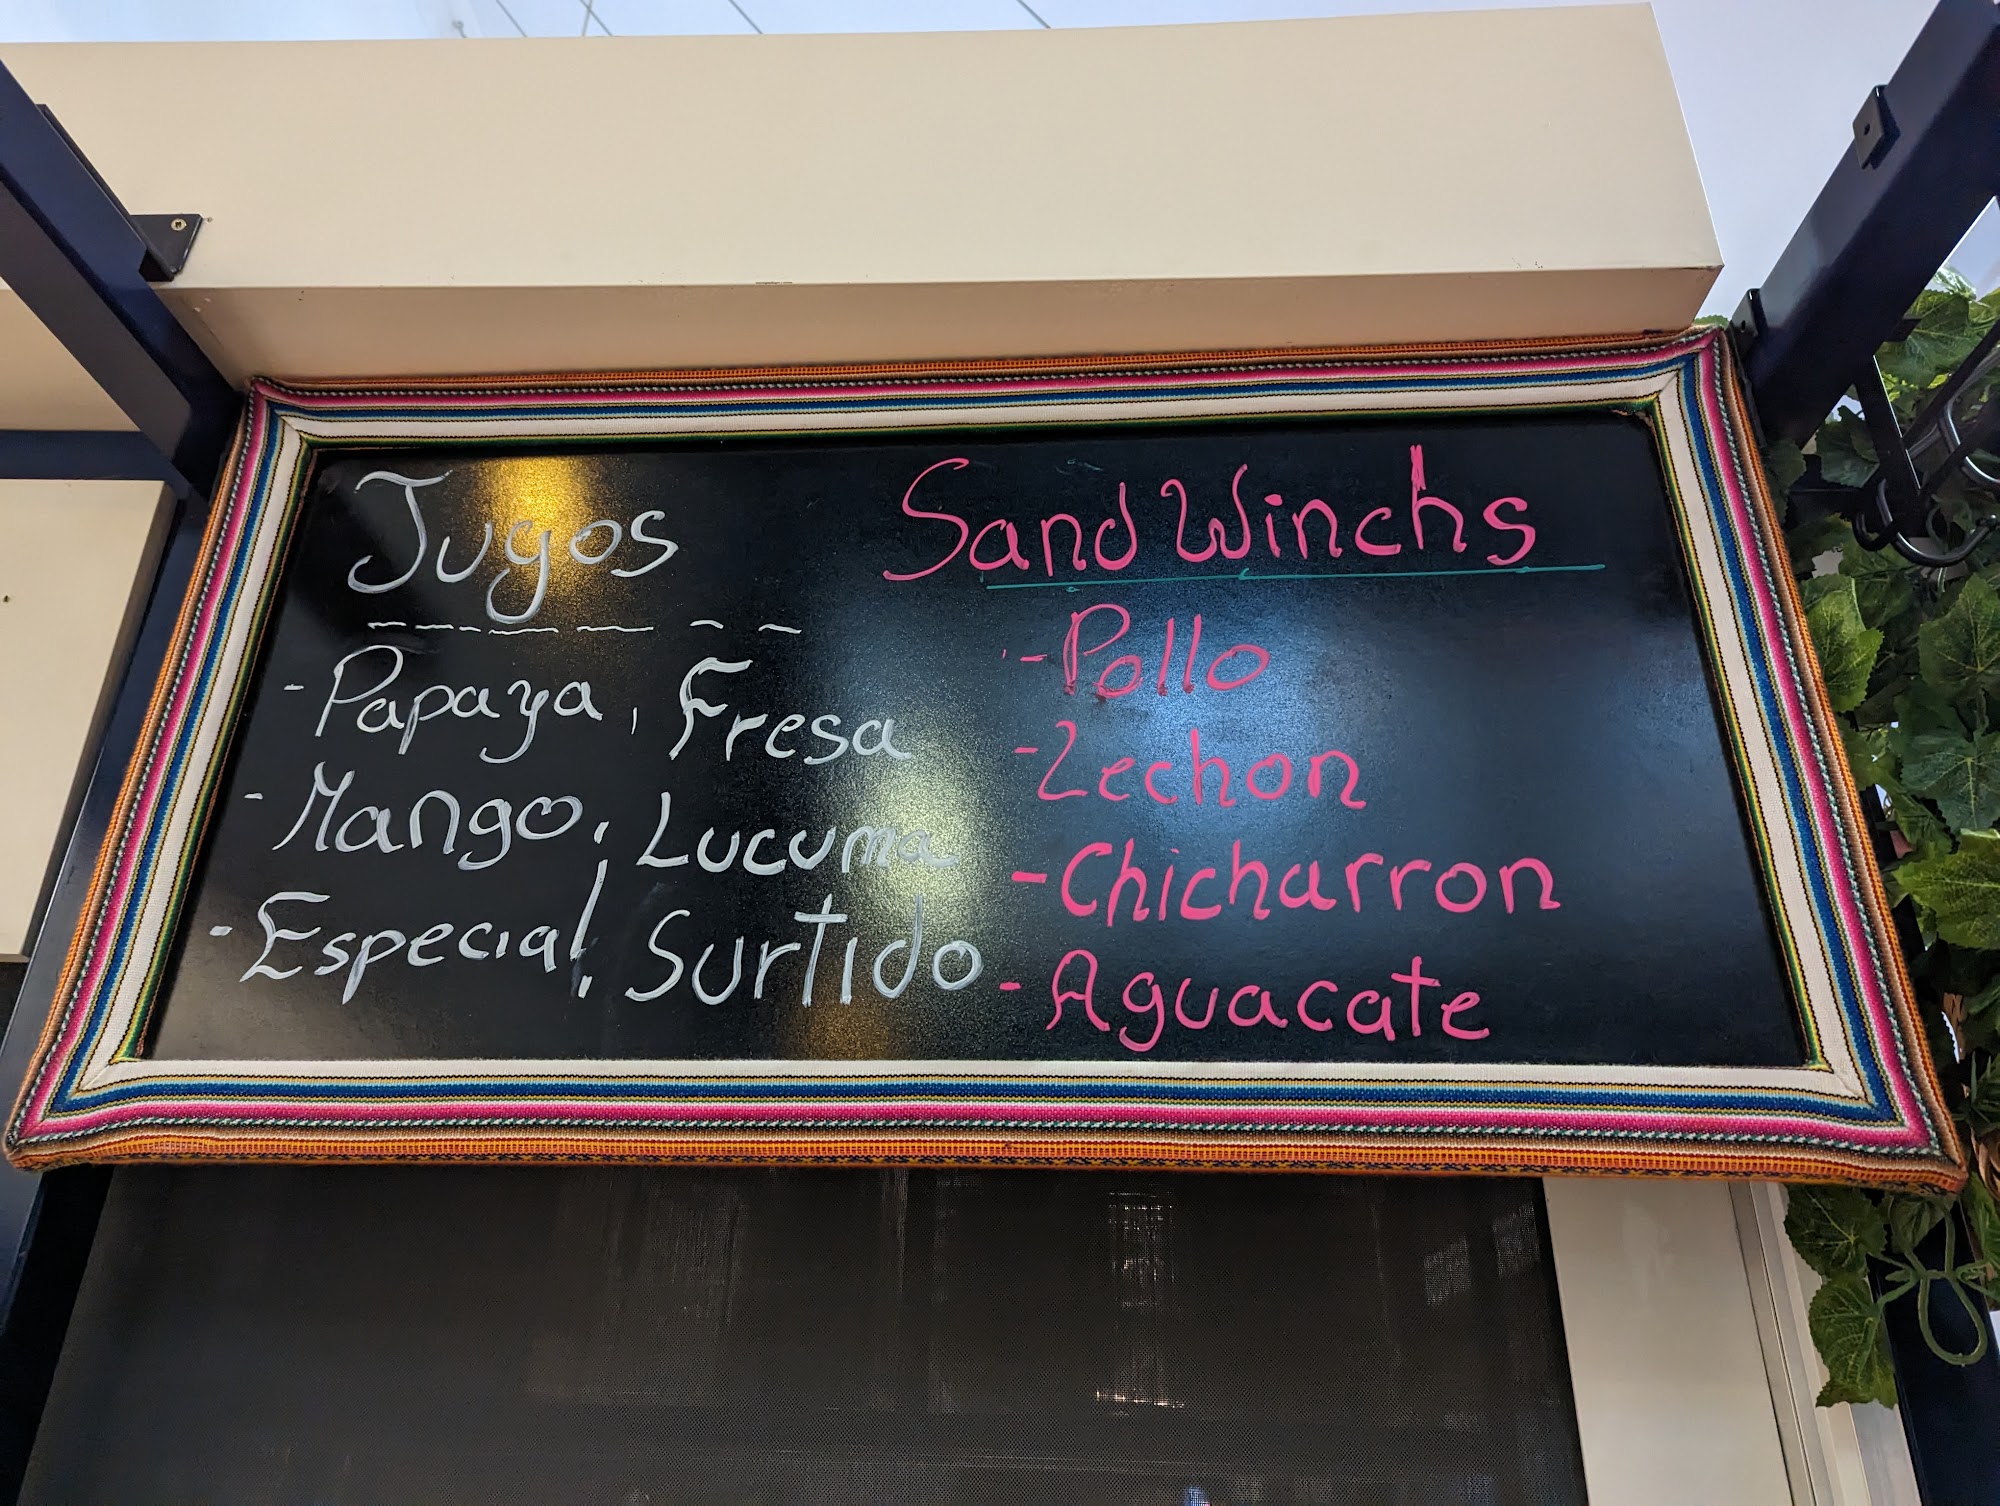 Jugos
- Papaya, Fresa
- Mango, Lucuma
- Especial, Surtido
SandWinchs
- Pollo
- Lechon
- Chicharron
- Aguacate